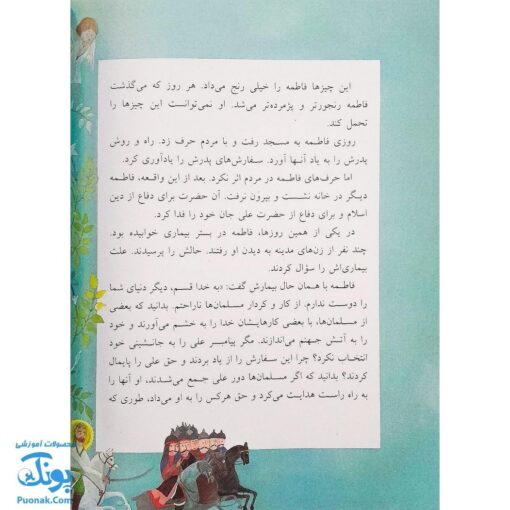 این چیزها فاطمه را خیلی رنج می‌داد. هر روز که می‌گذشت
فاطمه رنجورتر و پژمرده‌تر می‌شد. او نمی‌توانست این چیزها را
تحمل کند.
روزی فاطمه به مسجد رفت و با مردم حرف زد. راه و روش
پدرش را به یاد آنها آورد. سفارش‌های پدرش را یادآوری کرد.
اما حرف‌های فاطمه در مردم اثر نکرد. بعد از این واقعه، فاطمه
دیگر در خانه نشست و بیرون نرفت. آن حضرت برای دفاع از دین
اسلام و برای دفاع از حضرت علی جان خود را فدا کرد.
در یکی از همین روزها، فاطمه در بستر بیماری خوابیده بود.
چند نفر از زن‌های مدینه به دیدن او رفتند. حالش را پرسیدند. علت
بیماری‌اش را سؤال کردند.
فاطمه با همان حال بیمارش گفت: «به خدا قسم، دیگر دنیای شما
را دوست ندارم. از کار و کردار مسلمان‌ها ناراحتم. بدانید که بعضی
از مسلمان‌ها، با بعضی کارهایشان خدا را به خشم می‌آورند و خود
را به آتش جهنم می‌اندازند. مگر پیامبر علی را به جانشینی خود
انتخاب نکرد؟ چرا این سفارش را از یاد بردند و حق علی را پایمال
کردند؟ بدانید که اگر مسلمان‌ها دور علی جمع می‌شدند، او آنها را
به راه راست هدایت می‌کرد و حق هرکس را به او می‌داد، طوری که
محصولات آموزشی
پونک
Puonak.Com